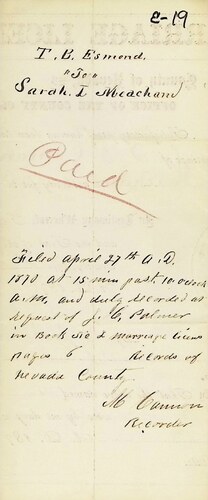 E-19
T. B. Esmond.
"To"
Sarah. I Meacham
Paid
Filed april 27th A.D.
1870 at 15 min past 10 oclock
a.m. and duly recorded at
request of J. C. Palmer
in Book No 2 marriage licens
pages 6 Records of
Nevada County
M Cannon
Recorder